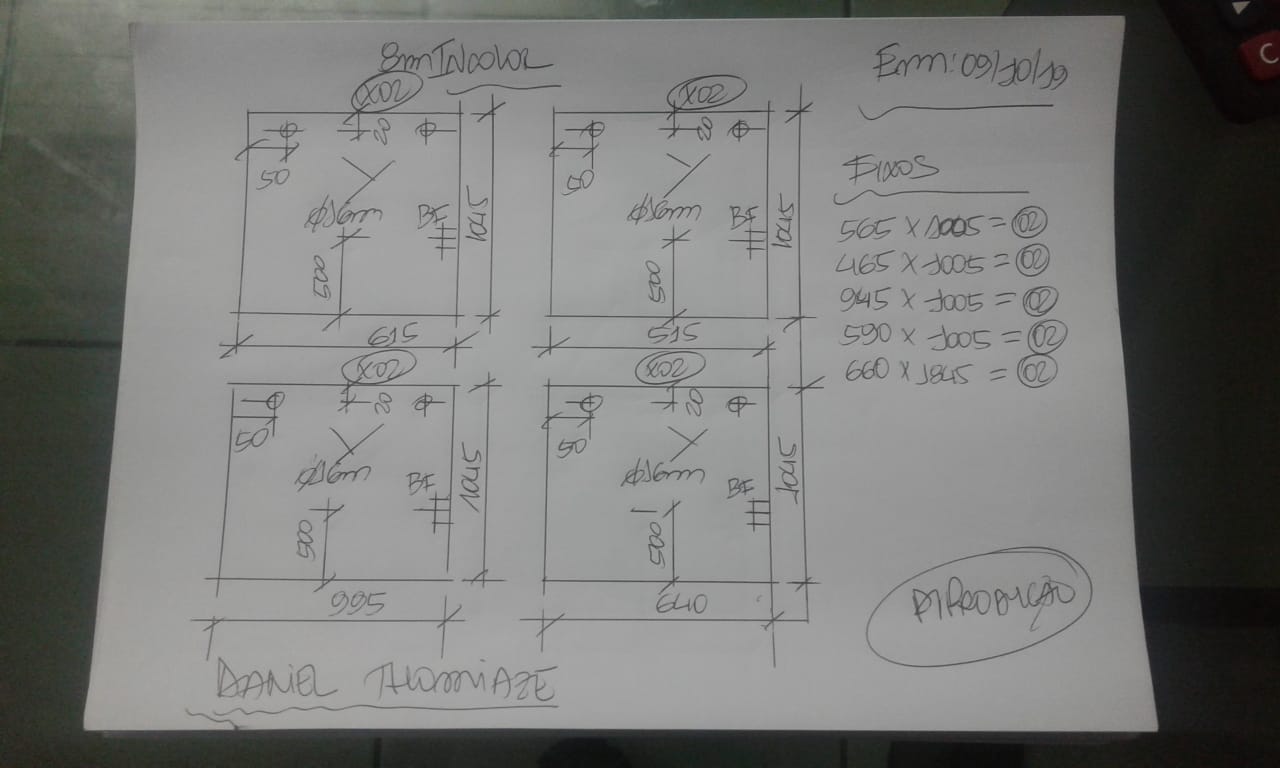 8mm INCOLOR
Emm: 09/10/19
X02
50
20
Ø16mm
BF
500
1045
615
X02
50
20
Ø16mm
BF
500
1045
515
X02
50
20
Ø16mm
BF
500
1045
995
X02
50
20
Ø16mm
BF
500
1045
640
FIXOS
565 X 1005 = 02
465 X 1005 = 02
945 X 1005 = 02
590 X 1005 = 02
660 X 1845 = 02
P/PRODUÇÃO
DANIEL THOMAZE